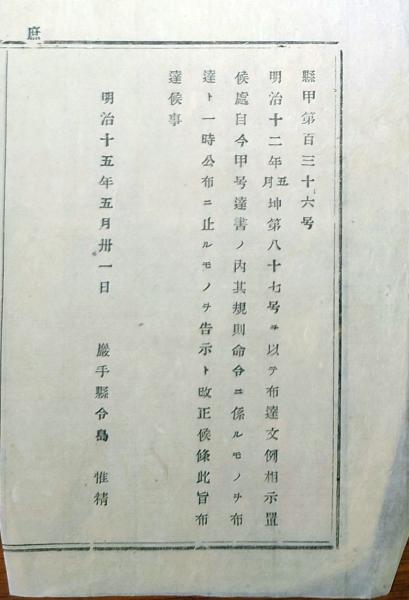 縣甲第百三十六号
明治十二年五月坤第八十七号ヲ以テ布達文例相示置
候處自今甲号達書ノ内其規則命令ニ係ルモノヲ布
達ト一時公布ニ止ルモノヲ告示ト改正候條此旨布
達候事
明治十五年五月卅一日
巖手縣令島 惟精
庶